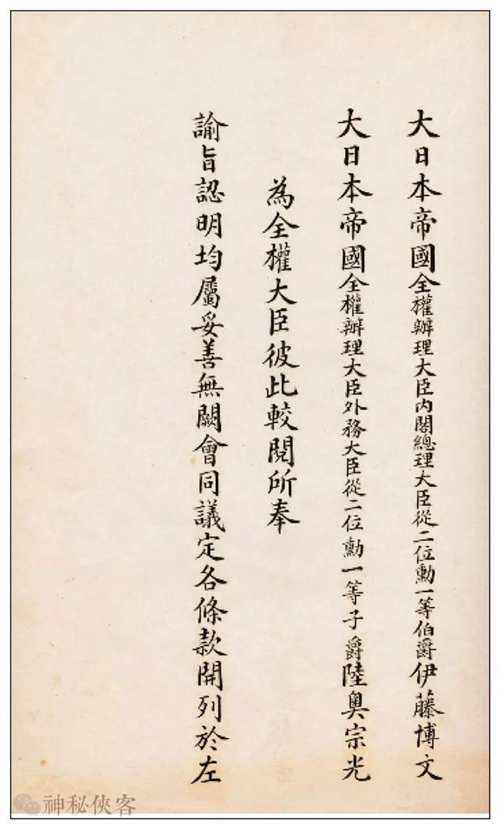 大日本帝國全權辦理大臣內閣總理大臣從二位勳一等伯爵伊藤博文
大日本帝國全權辦理大臣外務大臣從二位勳一等子爵陸奧宗光
為全權大臣彼此較閱所奉
諭旨認明均屬妥善無闕會同議定各條款開列於左
神秘俠客